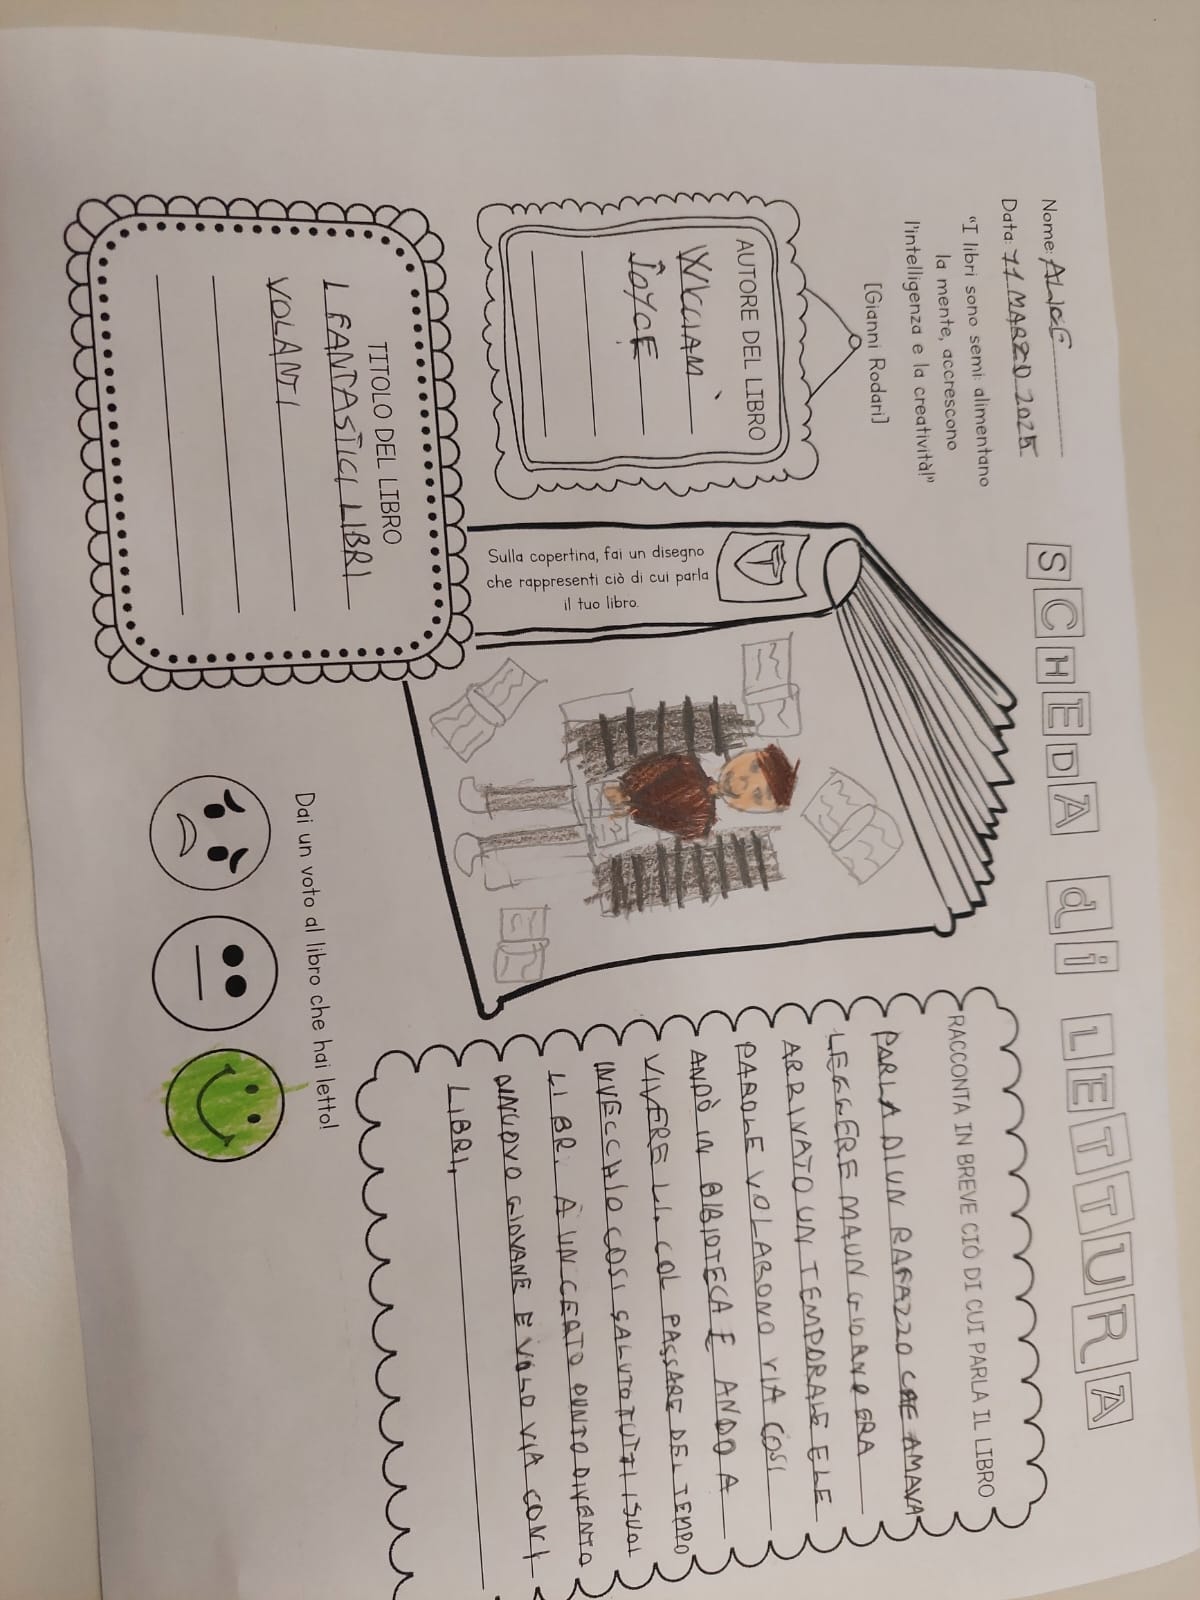 SCHEDA di LETTURA
Nome: ALICE
Data: 11 MARZO 2025
"I libri sono semi: alimentano
la mente, accrescono
l'intelligenza e la creatività!"
[Gianni Rodari]
AUTORE DEL LIBRO
WILLIAM
JOYCE
TITOLO DEL LIBRO
I FANTASTICI LIBRI
VOLANTI
Sulla copertina, fai un disegno
che rappresenti ciò di cui parla
il tuo libro.
RACCONTA IN BREVE CIÒ DI CUI PARLA IL LIBRO
PARLA DI UN RAGAZZO CHE AMAVA
LEGGERE MA UN GIORNO ERA
ARRIVATO UN TEMPORALE E LE
PAROLE VOLARONO VIA COSI
ANDÒ IN BIBIOTECA E ANDO A
VIVERE LI. COL PASSARE DEL TEMPO
INVECCHIO COSI SALUTO TUTTI I SUOI
LIBRI. A UN CERTO PUNTO DIVENTO
DINUOVO GIOVANE E VOLO VIA CON I
LIBRI.
Dai un voto al libro che hai letto!